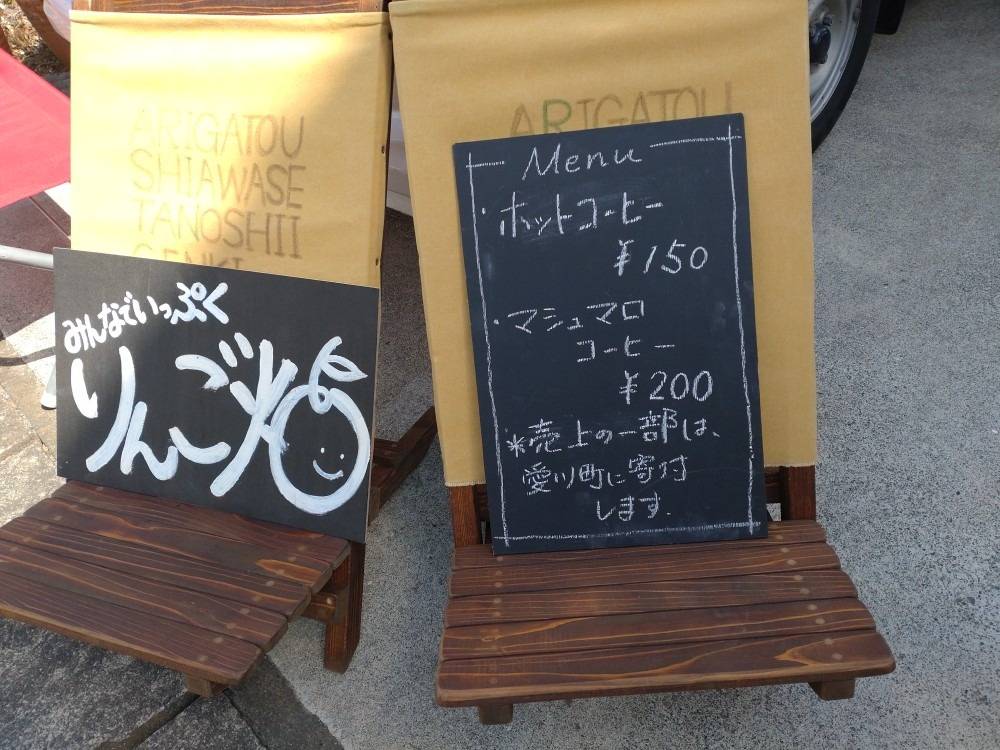 ARIGATOU
SHIAWASE
TANOSHII
GENKI
みんなでいっぷく
りんご火田
ARIGATOU
Menu
・ホットコーヒー
¥150
・マシュマロ
コーヒー
¥200
*売上の一部は、
愛川町に寄付
します.